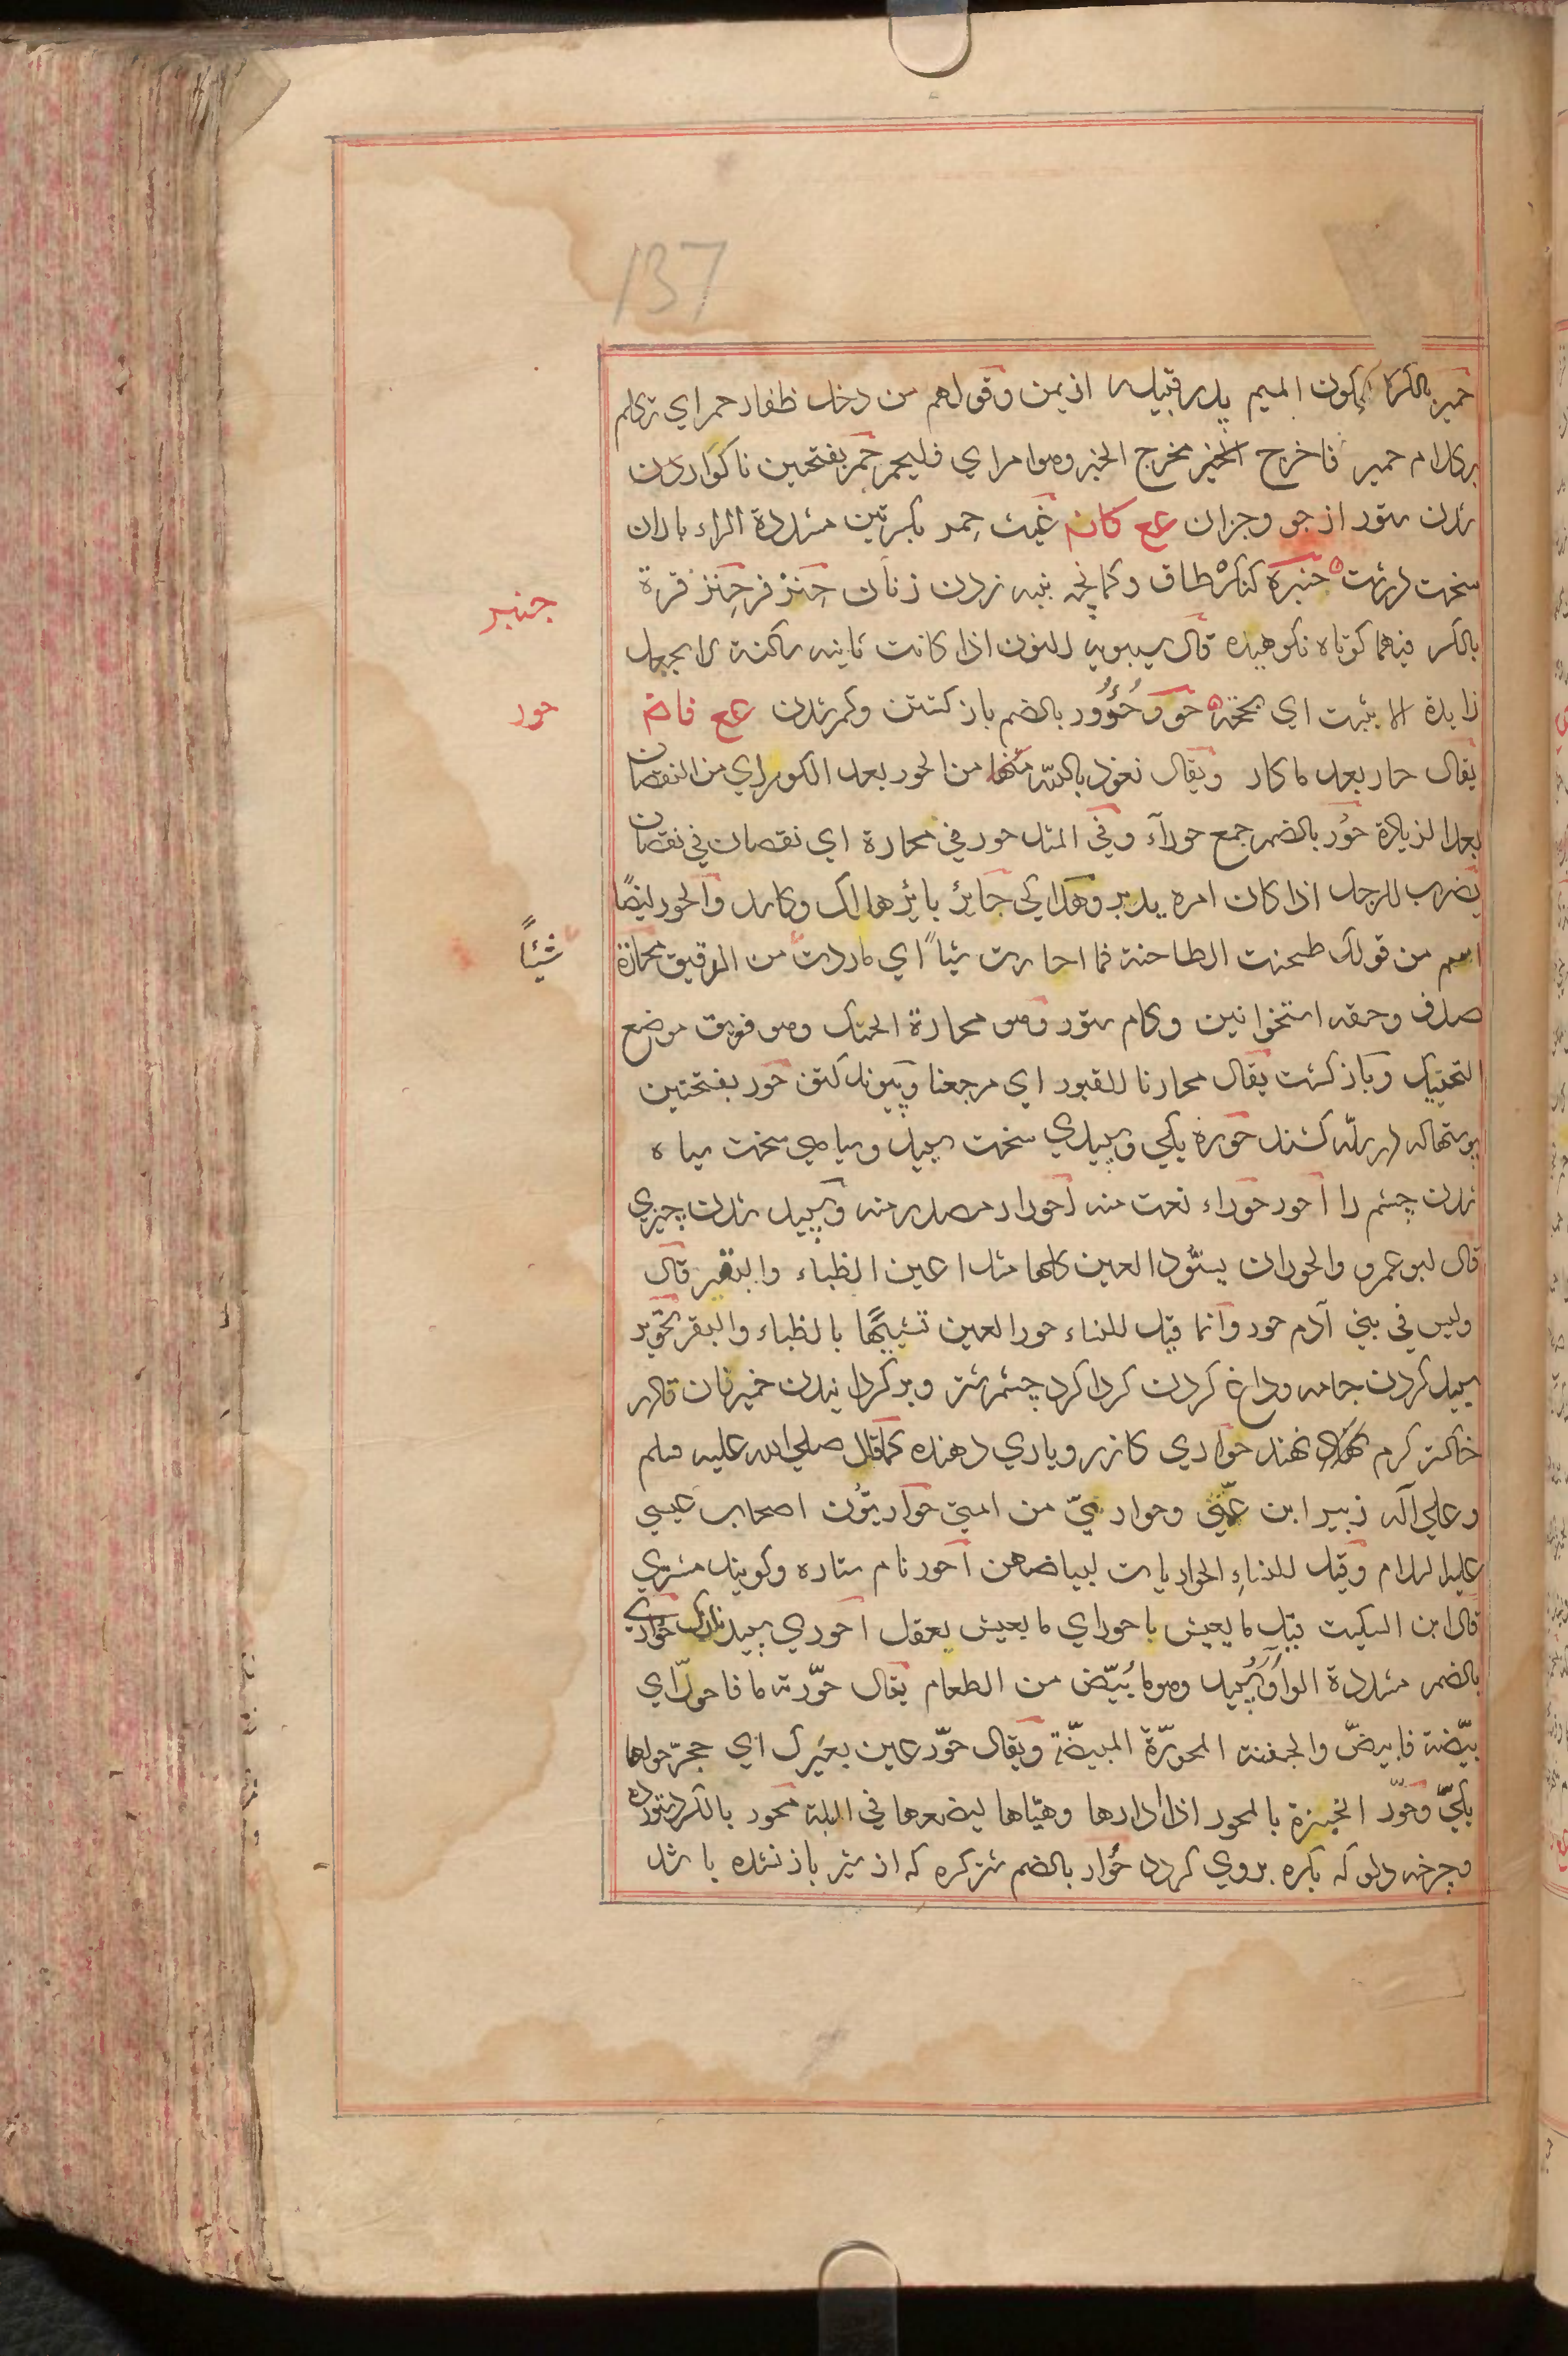 137
حمیر بالکسر و سکون المیم پدر قبیله از یمن وقولهم من دخل ظفار حمر اي تکلم
بکلام حمیر فاخرج الخبر مخرج الخبر وهو امر اي فلیحمر حمر بفتحین ناکواردن
شدن ستور از جو وجزان عع کانم غیث حمر بکسرتین مشددة الراء باران
سخت درشت حنبرة کنکرۀ طاق وکمانچه پنبه زدن زنان حنزقر حنزقرة
بالکسر فیهما کوتاه نکوهیده قال سیبویه النون اذا کانت ثانیه ساکنة لا یجعل
زایدة الا بثبت اي بحجة حور وحؤور بالضم باز کشتن وکم شدن عع فاض
یقال حار بعد ما کار ویقال نعوذ بالله منها من الحور بعد الکور اي من النقصان
بعد الزیادة حور بالضم جمع حوراء وفي المثل حور في محارة اي نقصان في نقصان
یضرب للرجل اذا کان امره یدبر وهلاکي جایز بائر هالک وکاسد والحور ایضًا
اسم من قولک طحنت الطاحنة فما احارت شیئًا اي ماردت من الدقیق محارة
صدف وحقه استخوانین وکام ستور وهو محارة الحنک وهو فویق موضع
التحنیک وباز کشت یقال محارنا للقبور اي مرجعنا وپیوند کتف حور بفتحتین
پوستهاکه در سله کشند حورة یکي وسپیدي سخت سپید وسیاهي سخت سیاه
شدن چشم را احور حوراء نعت منه احورار مصدر منه وسپید شدن چیزي
قال ابو عمرو والحور ان یسود العین کلها مثل اعین الظباء والبقر قال
ولیس في بني آدم حور وانما قیل للنساء حور العین تشبیهًا بالظباء والبقر تحویر
سپید کردن جامه وداغ کردن کردا کرد چشم شتر وبر کردانیدن خمیر نان تا در
خاکستر کرم نهند حواري کازر و یاري دهنده کما قال صلي الله علیه وسلم
وعلي آله زبیر ابن عمتي وحواریي من امتي حواریون اصحاب عیسي
علیه السلام وقیل للنساء الحواریات لبیاضهن احور نام ستاره وکویند مشتري
قال ابن السکیت قیل ما یعیش باحور اي ما یعیش بعقل احوري سپید نازک حواري
بالضم مشددة الواو سپید وهو ما بیض من الطعام یقال حورته فاحور اي
بیضته فابیض والجفنة المحورة المبیضة ویقال حور عین بعیرک اي حجر حولها
بکي وحور الخبزة بالمحور اذا ادارها وهیاها لیضعها في الملة محور بالکسر
وچرخه دلو که بکره بروي کردد حوار بالضم شتر کره که از شیر باز نشده باشد
جنبر
حور
شیئًا